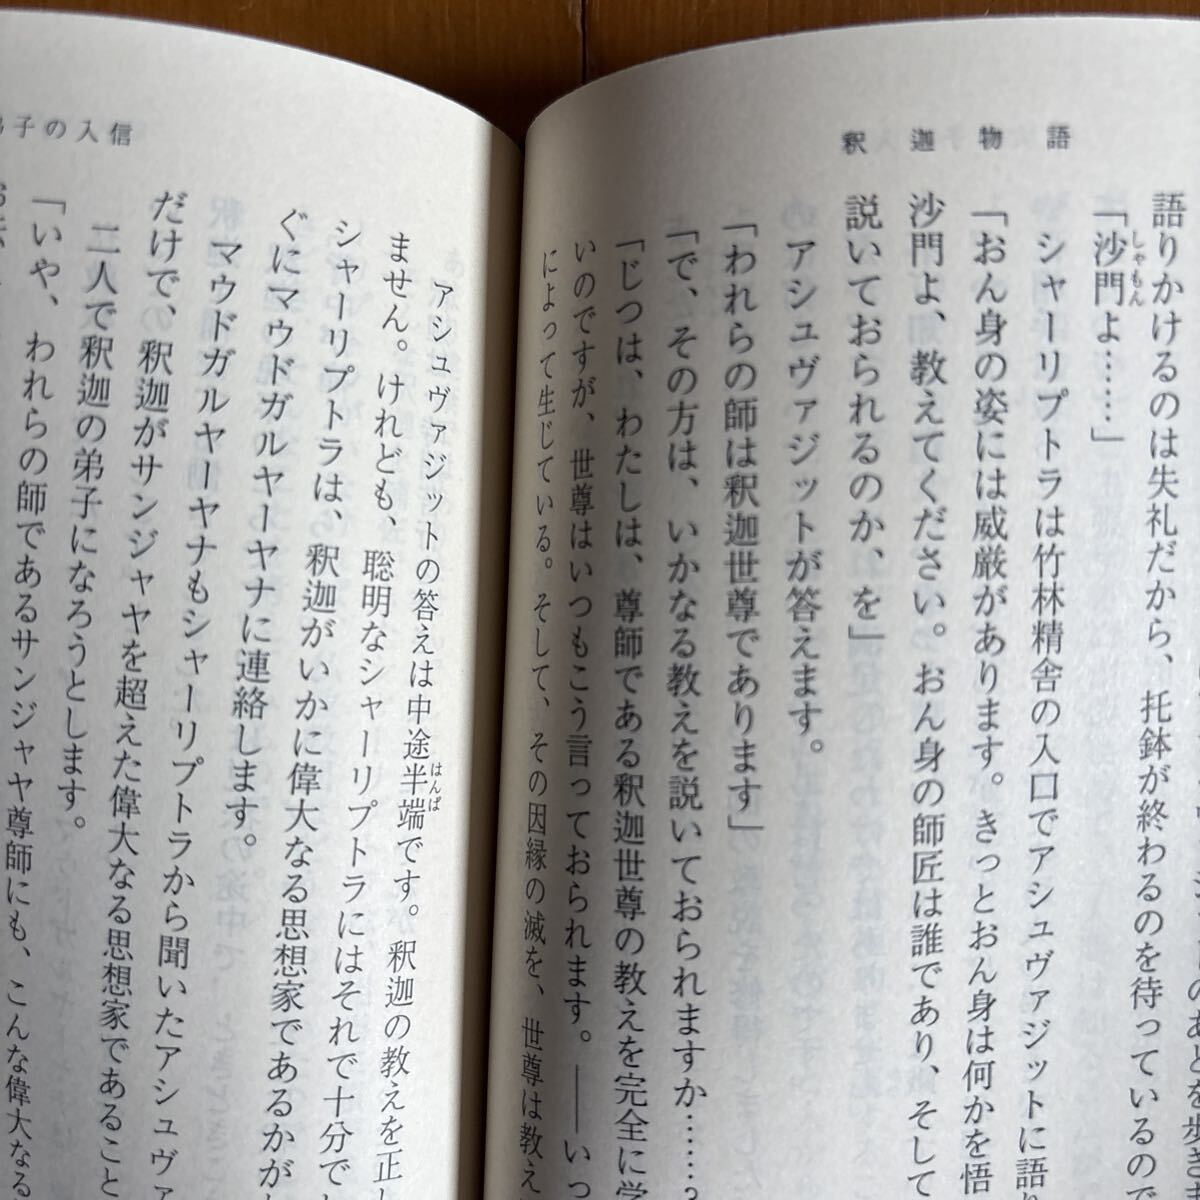 釈迦物語
語りかけるのは失礼だから、托鉢が終わるのを待っているので
「沙門よ……」
しゃもん
シャーリプトラは竹林精舎の入口でアシュヴァジットに語り
「おん身の姿には威厳があります。きっとおん身は何かを悟
沙門よ、教えてください。おん身の師匠は誰であり、そして
説いておられるのか、を」
アシュヴァジットが答えます。
「われらの師は釈迦世尊であります」
「で、その方は、いかなる教えを説いておられますか……?
「じつは、わたしは、尊師である釈迦世尊の教えを完全に学
いのですが、世尊はいつもこう言っておられます。――いっ
によって生じている。そして、その因縁の滅を、世尊は教え
弟子の入信
アシュヴァジットの答えは中途半端です。釈迦の教えを正し
はんぱ
ません。けれども、聡明なシャーリプトラにはそれで十分で
シャーリプトラは、釈迦がいかに偉大なる思想家であるかが
ぐにマウドガルヤーヤナに連絡します。
マウドガルヤーヤナもシャーリプトラから聞いたアシュヴァ
だけで、釈迦がサンジャヤを超えた偉大なる思想家であること
二人で釈迦の弟子になろうとします。
「いや、われらの師であるサンジャヤ尊師にも、こんな偉大なる